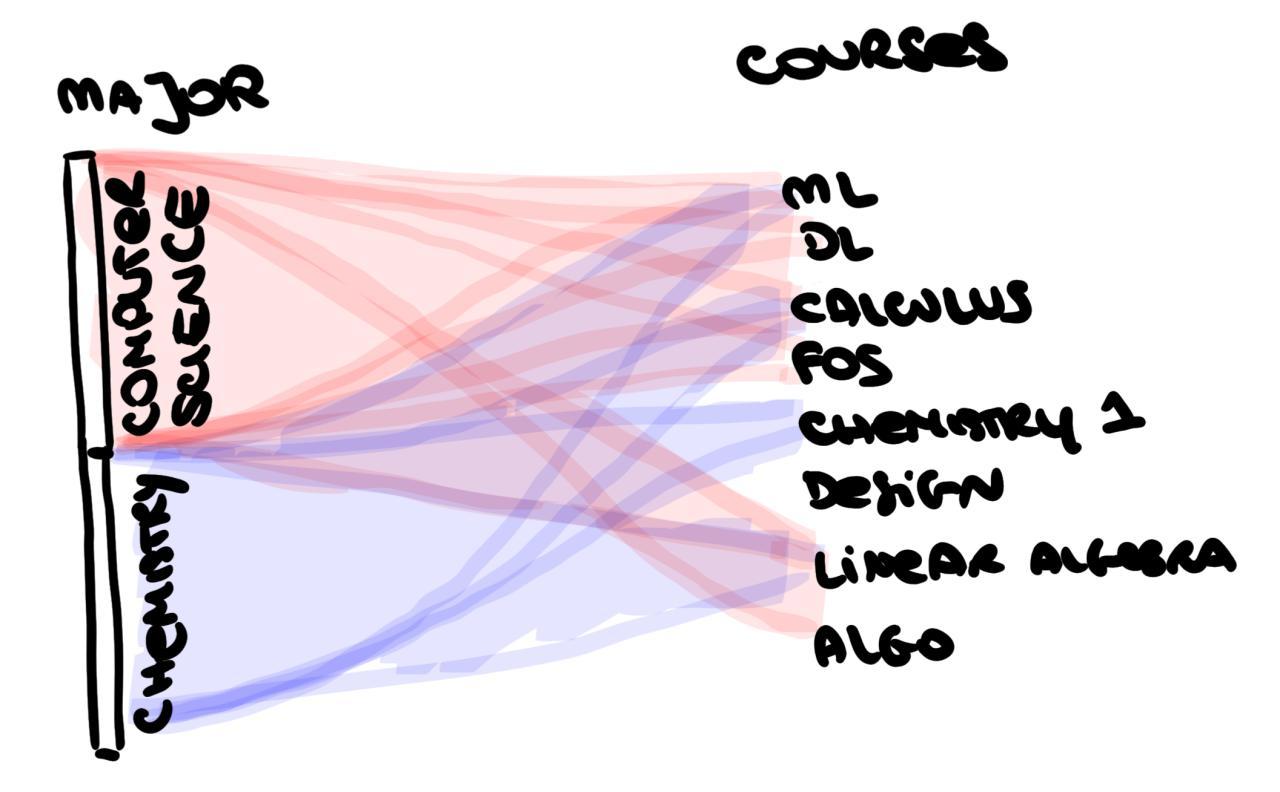 MAJOR
COURSES
COMPUTER
SCIENCE
CHEMISTRY
ML
DL
CALCULUS
FOS
CHEMISTRY 1
DESIGN
LINEAR ALGEBRA
ALGO